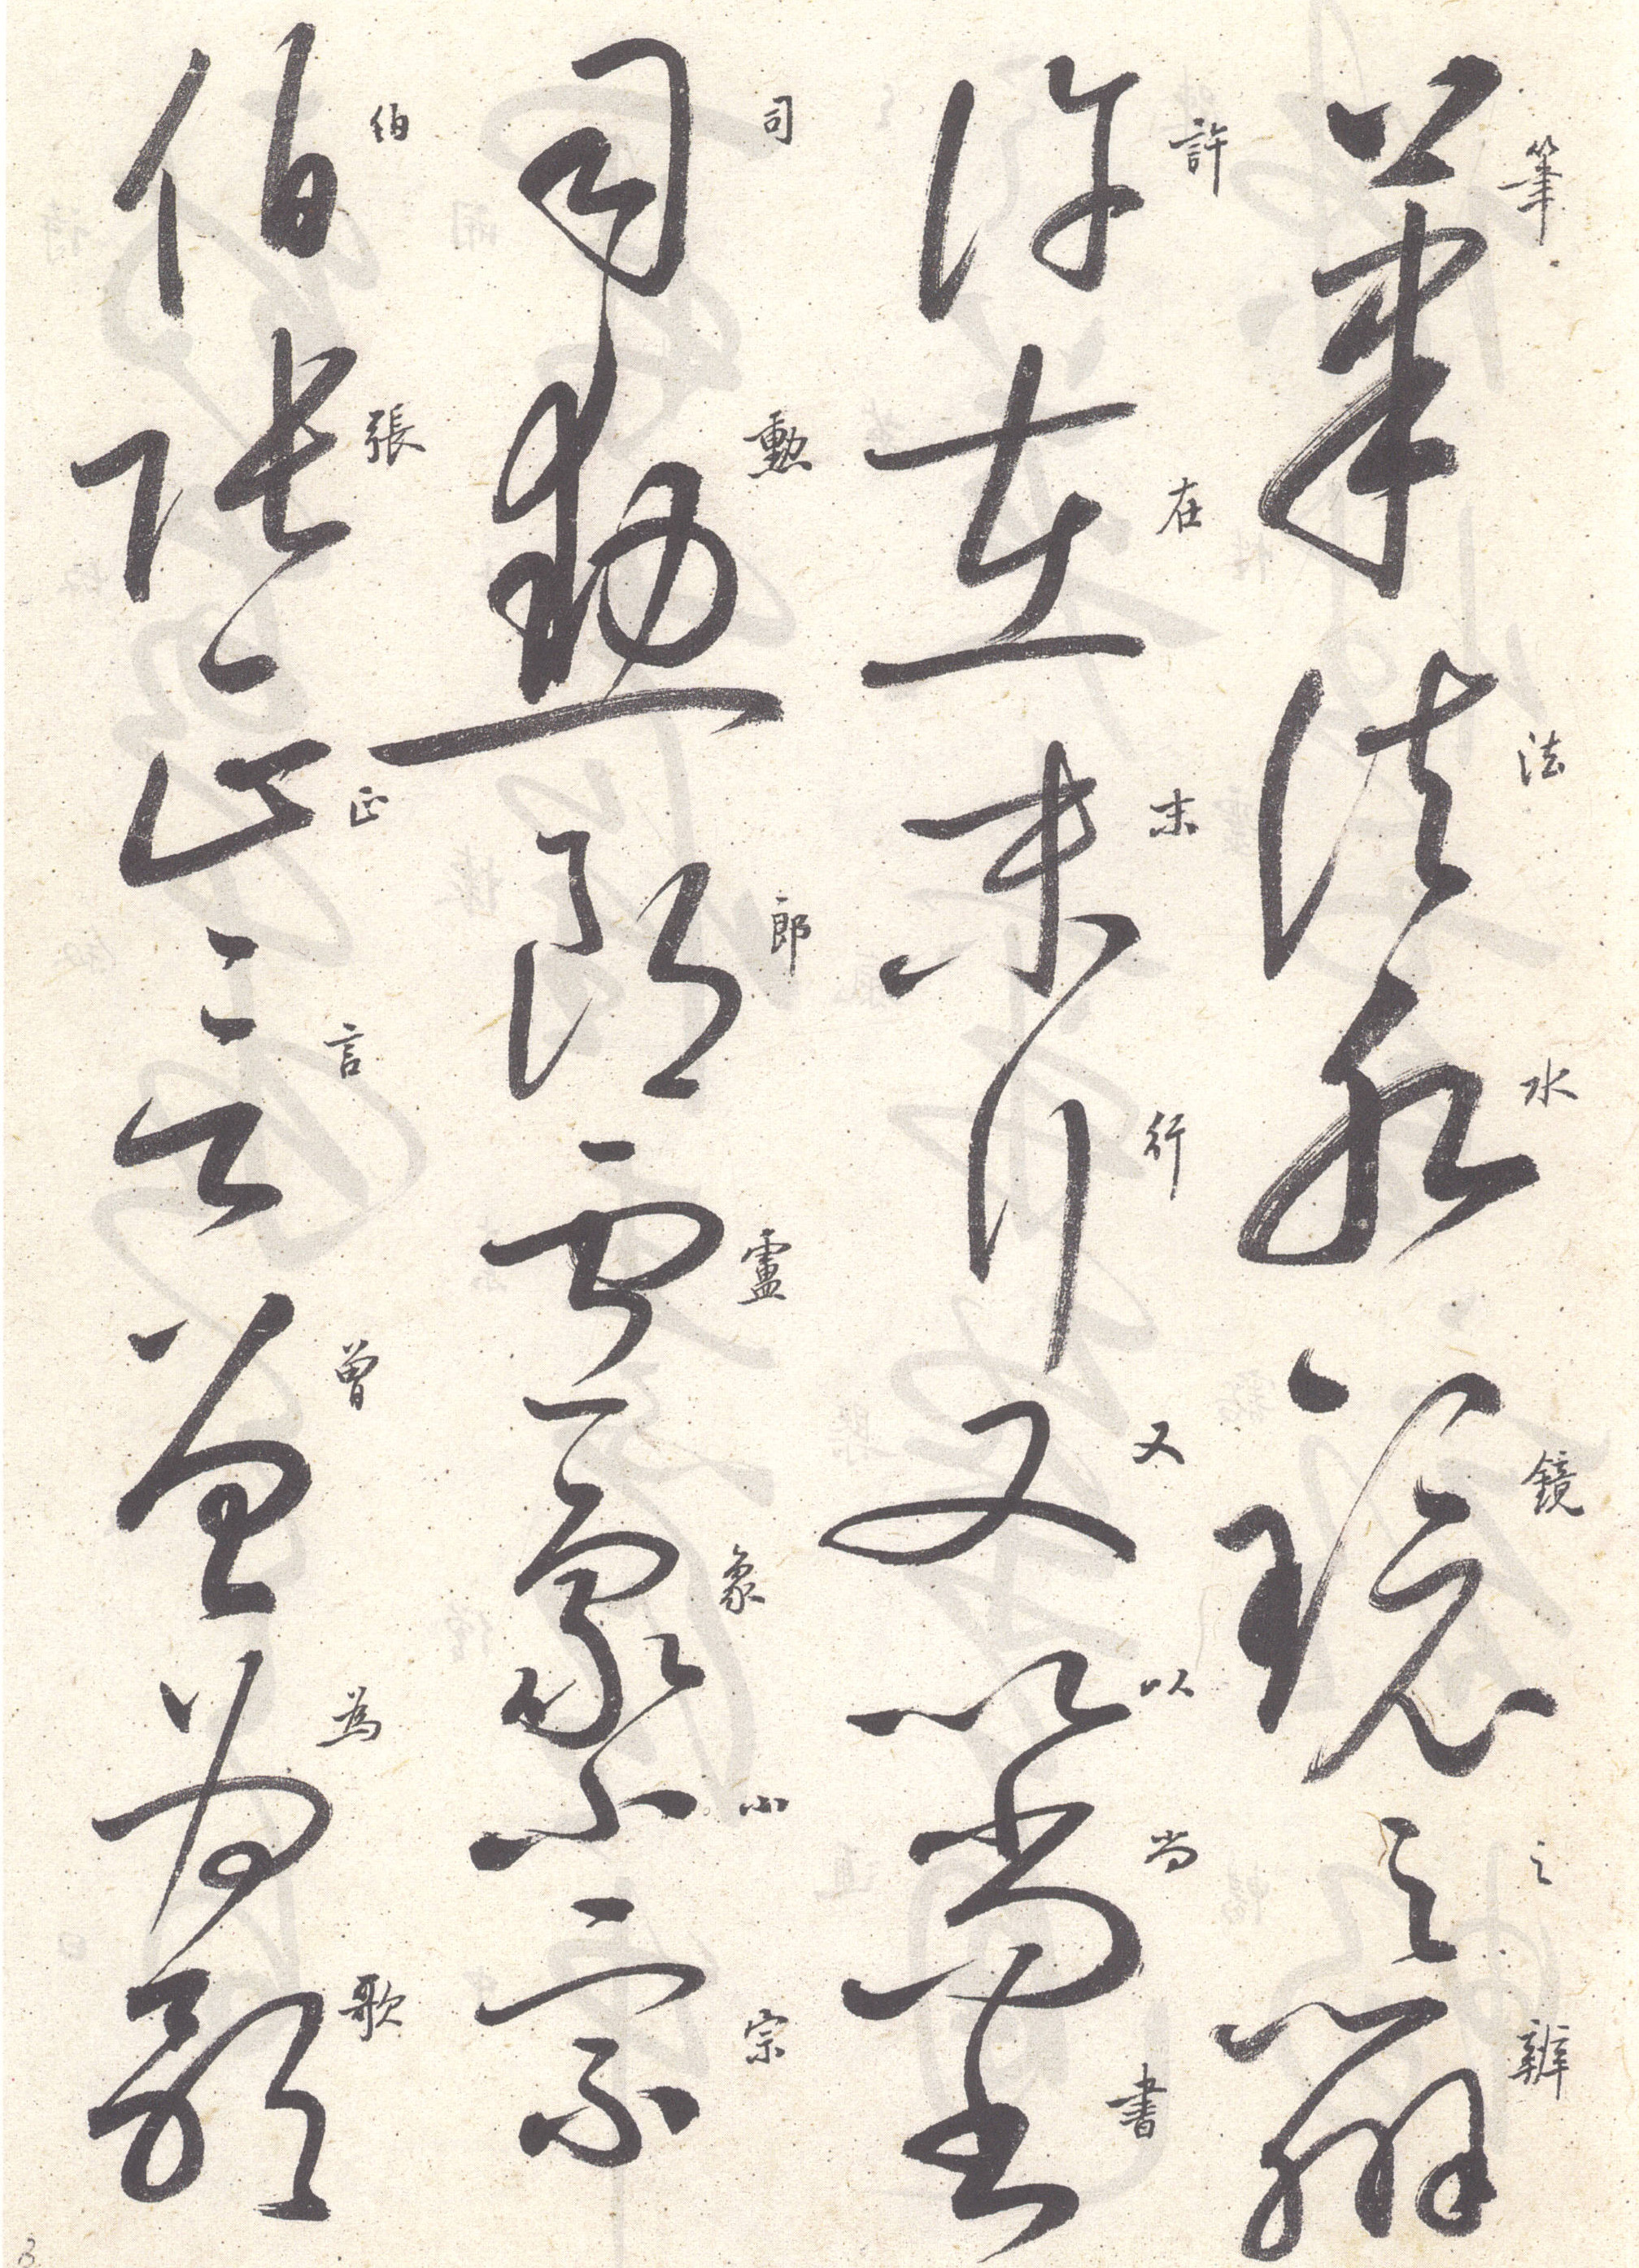 筆法水鏡之辨
許在末行又以尚書
司勳郎盧象小宗
伯張正言曾為歌